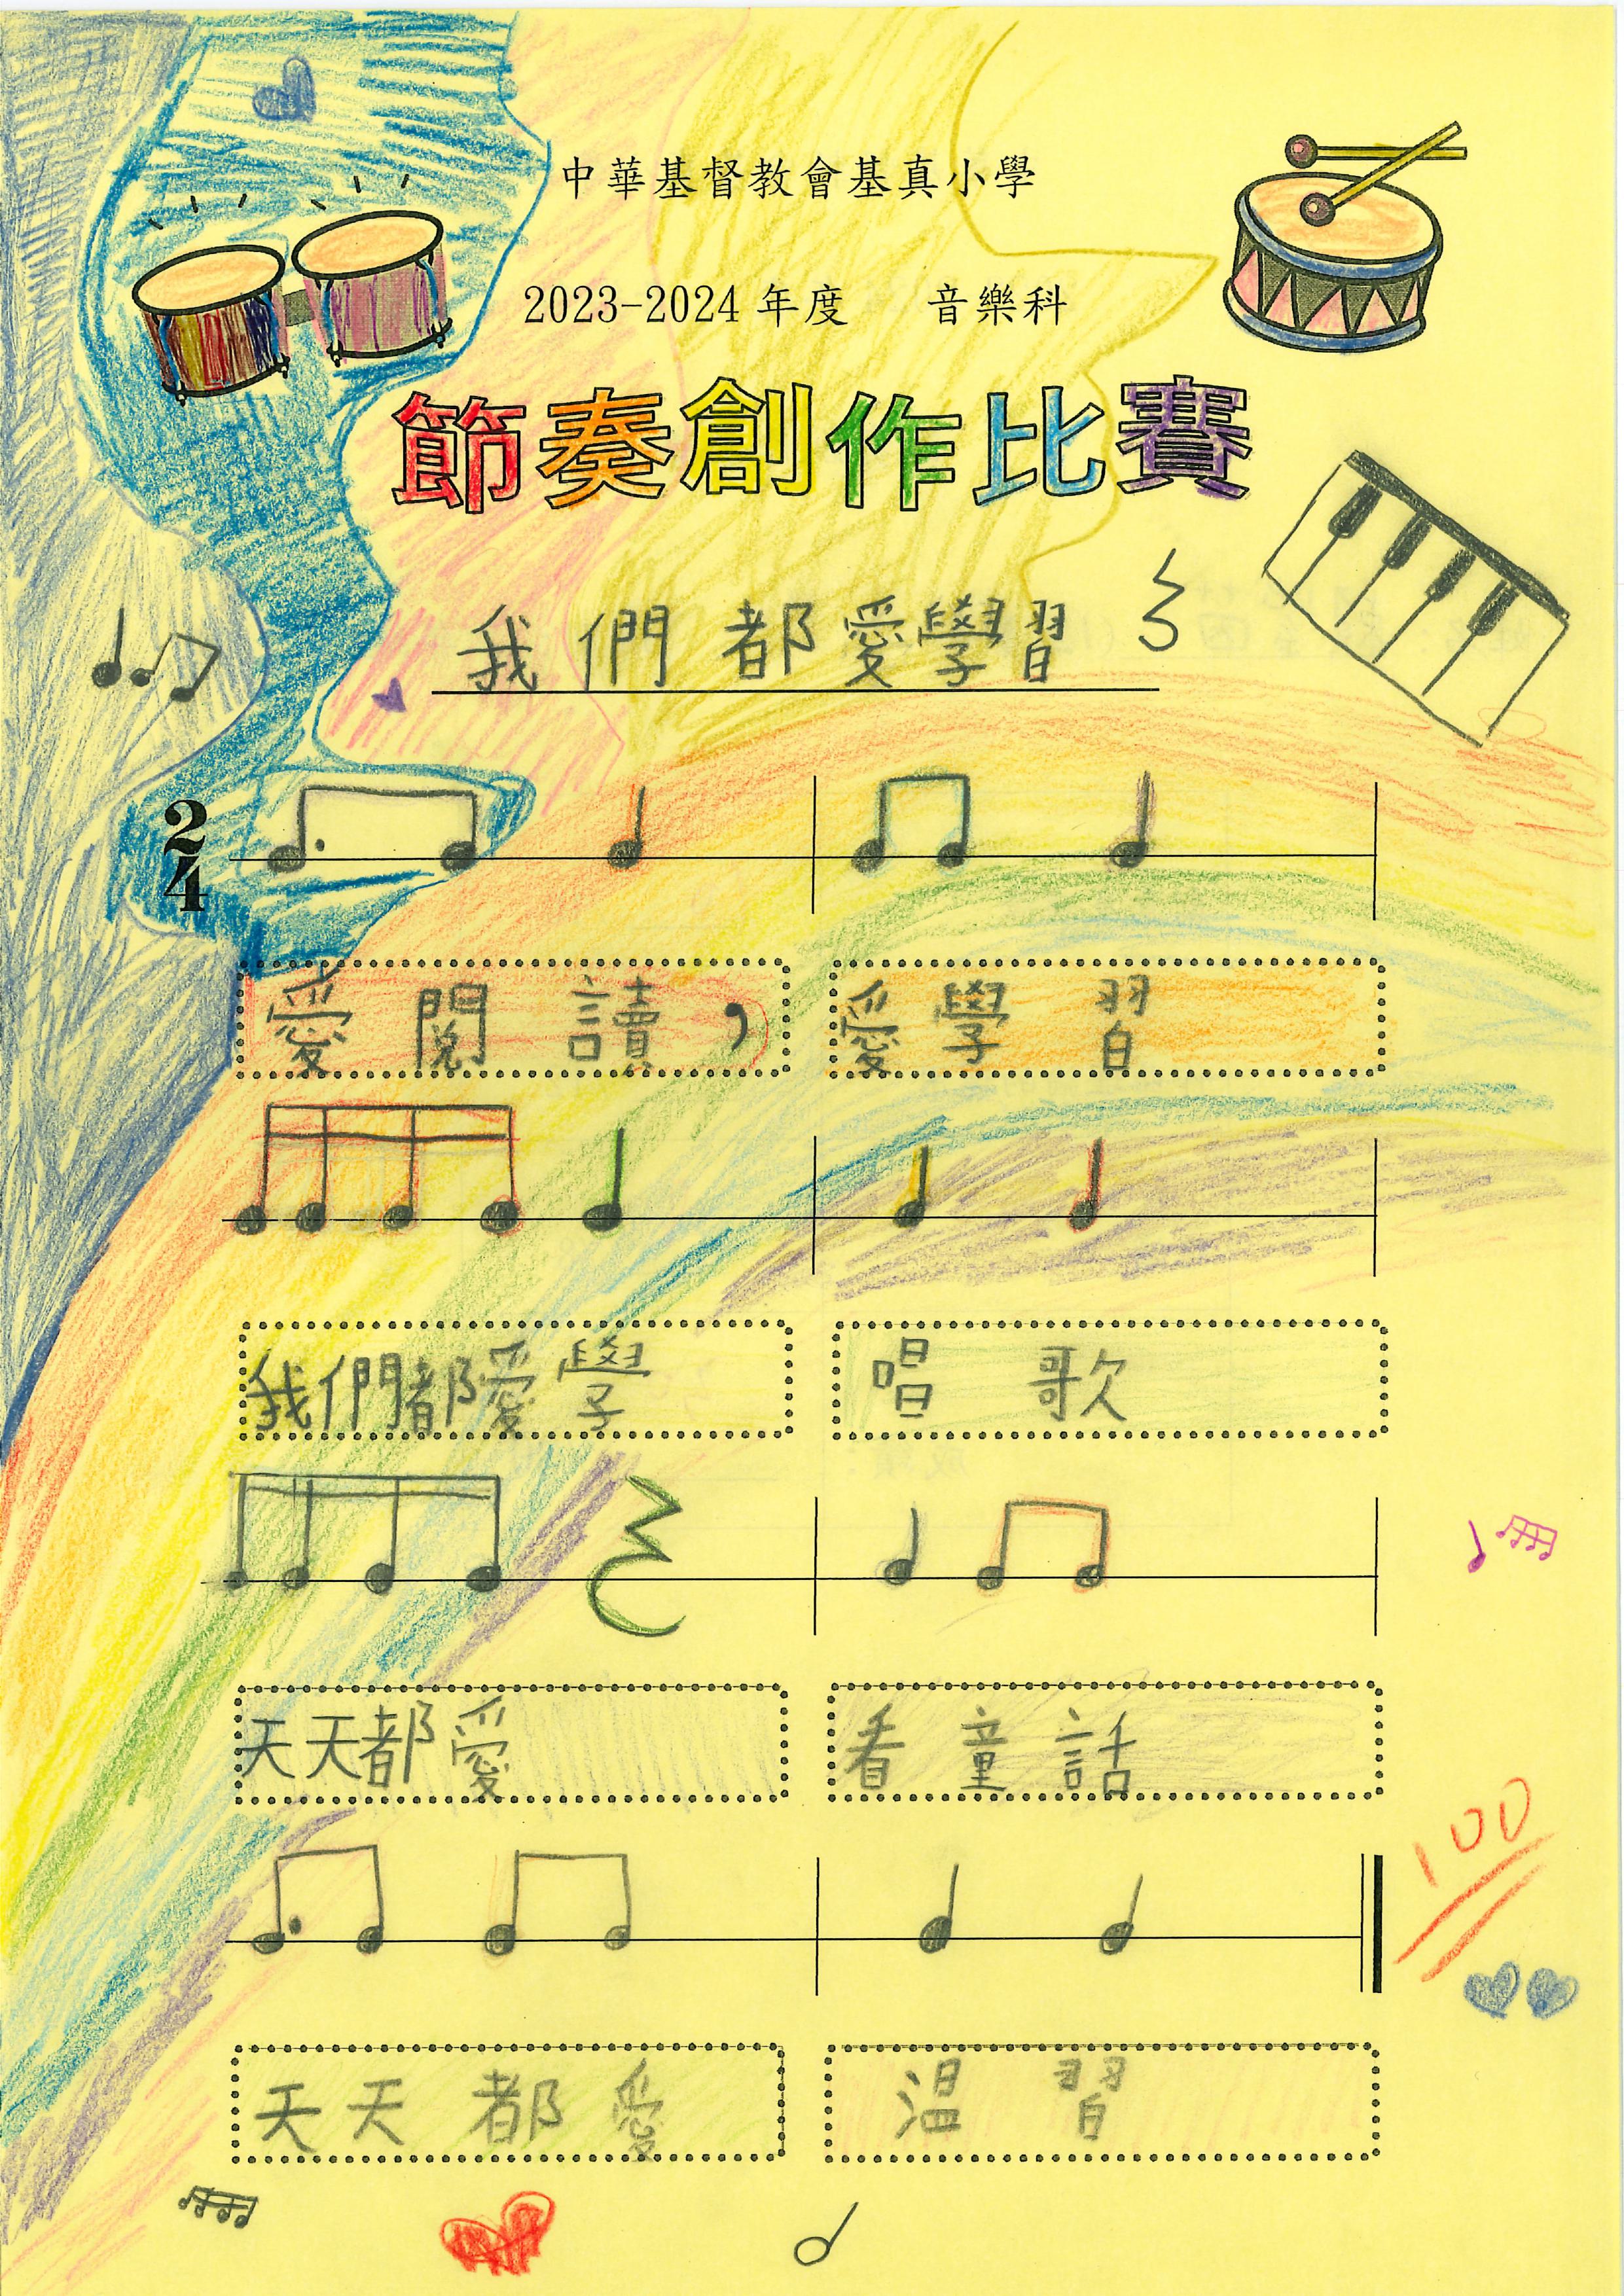 中華基督教會基真小學
2023-2024年度 音樂科
節奏創作比賽
我們都愛學習
2
4
愛閱讀， 愛學習
我們都愛學 唱歌
天天都愛 看童話
100
天天都愛 温習